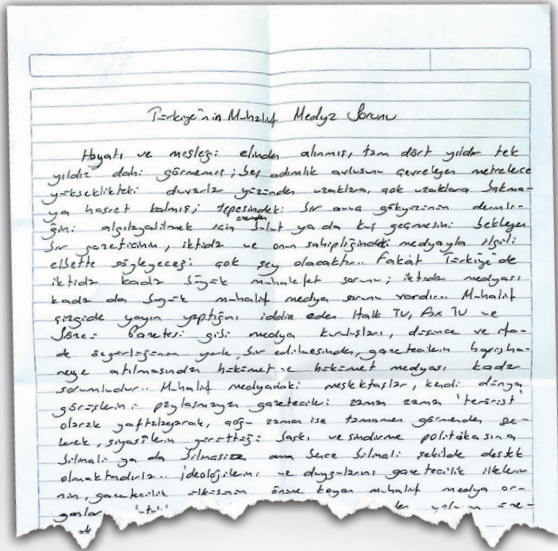 Türkiye'nin Muhalif Medya Sorunu
Hayatı ve mesleği elinden alınmış, tam dört yıldır tek
yıldız dahi görmemiş; beş adımlık avlusunu çevreleyen metrelerce
yükseklikteki duvarlar yüzünden uzaklara, çok uzaklara bakma-
ya hasret kalmış; tepesindeki bir avuç gökyüzünün derinli-
ğini algılayabilmek için üzerinden bulut ya da kuş geçmesini bekleyen
bir gazetecinin, iktidar ve onun sahipliğindeki medyayla ilgili
elbette söyleyeceği çok şey olacaktır.. Fakat Türkiye'de
iktidar kadar büyük muhalefet sorunu; iktidar medyası
kadar da büyük muhalif medya sorunu vardır.. Muhalif
çizgide yayın yaptığını iddia eden Halk TV, Fox TV ve
Sözcü Gazetesi gibi medya kuruluşları, düşünce ve ifa-
de özgürlüğünün yerle bir edilmesinden, gazetecilerin hapisha-
neye atılmasından hükümet ve hükümet medyası kadar
sorumludur.. Muhalif medyadaki meslektaşlar, kendi dünya
görüşlerini paylaşmayan gazetecileri zaman zaman 'terörist'
olarak yaftalayarak, çoğu zaman ise tamamen görmezden ge-
lerek, siyasilerin yürüttüğü baskı ve sindirme politikasına
bilmeli ya da bilmeksizin ama bence bilmeli şekilde destek
olmaktadırlar.. ideolojilerini ve duygularını gazetecilik ilkeleri-
nin, gazetecilik etkisinin önüne koyan muhalif medya or-
ganları